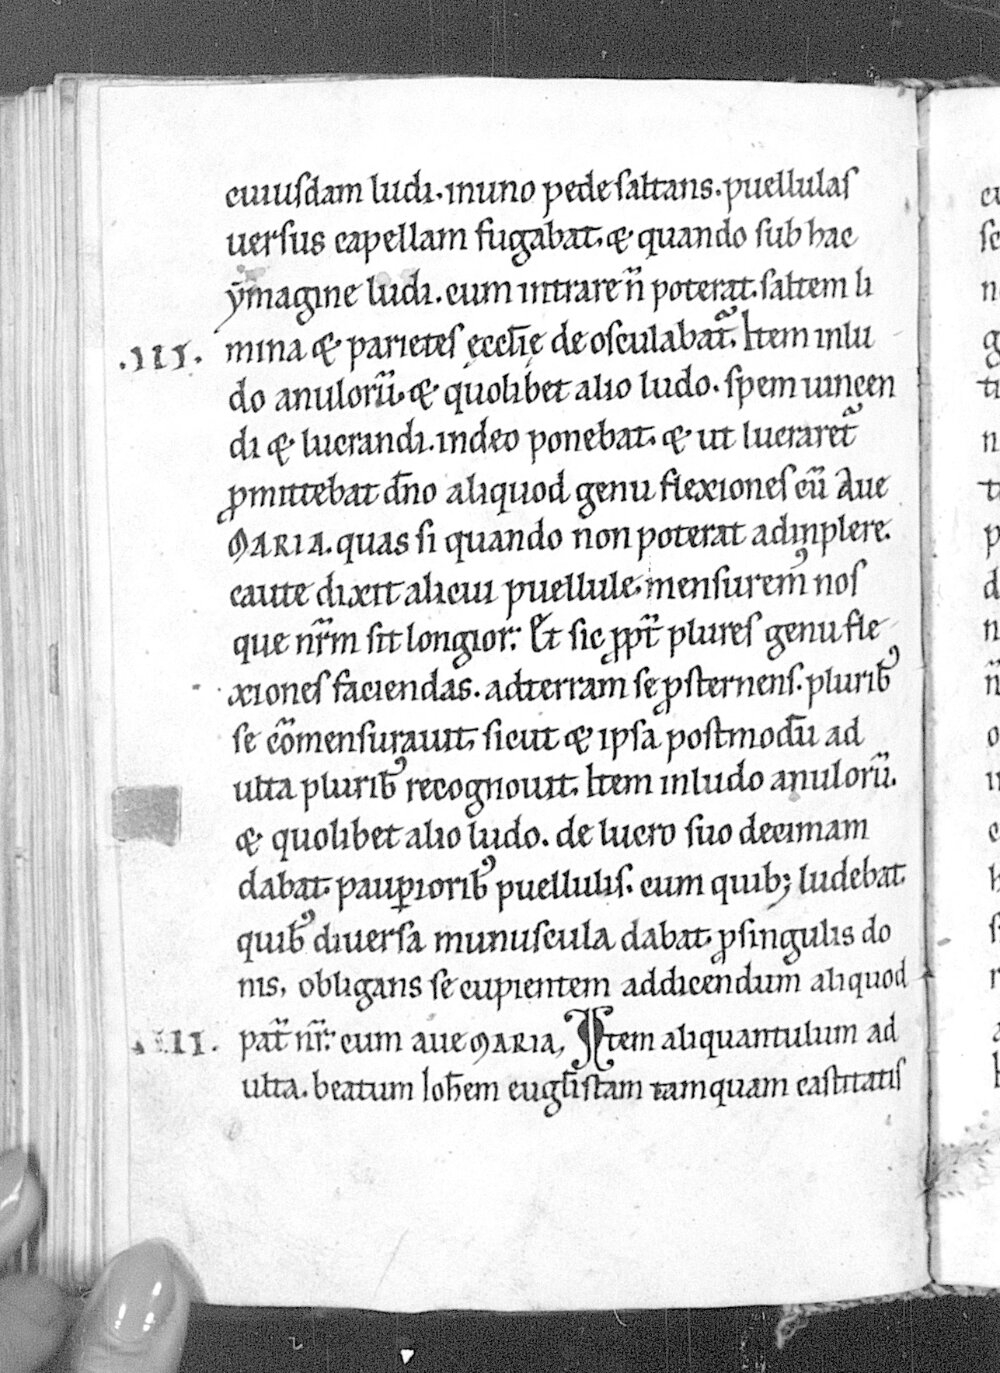 cuiusdam ludi. inuno pede saltans. puellulas
uersus capellam fugabat. & quando sub hac
ymagine ludi. cum intrare n̄ poterat. saltem li
.III. mina & parietes ęccl̄ię de osculabat᷑. Item inlu
do anulorū. & quolibet alio ludo. spem uincen
di & lucrandi. indeo ponebat. & ut lucraret᷑
ꝓmittebat dn̄o aliquod genu flexiones cū Aue
MARIA. quas si quando non poterat adinplere.
caute dixit alicui puellule. mensurem᷒ nos
que nr̄m sit longior. Et sic ꝓpt̄ plures genu fle
xiones faciendas. adterram se ꝓsternens. plurib᷒
se cōmensurauit, sicut & ipsa postmodū ad
ulta plurib᷒ recognouit. Item inludo anulorū.
& quolibet alio ludo. de lucro suo decimam
dabat. paupꝑiorib᷒ puellulis. cum quib; ludebat.
quib᷒ diuersa munuscula dabat. ꝓsingulis do
nis, obligans se cupientem addicendum aliquod
.IIII. pat̄ nr̄. cum aue MARIA, Item aliquantulum ad
ulta. beatum Ioh̄em euḡlistam tamquam castitatis